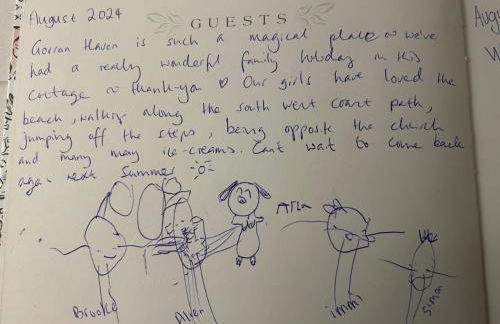 August 2024
GUESTS
Gorran Haven is such a magical place ~ we've
had a really wonderful family holiday in this
cottage ~ thank-you ♡ Our girls have loved the
beach, walking along the south west coast path,
jumping off the steps, being opposite the church
and many many ice-creams. Can't wait to come back
again next Summer
Arla
Brooke
immi
Simon
Aug
W